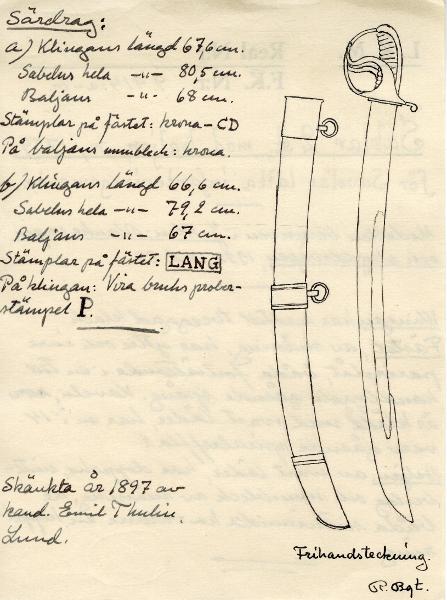 Särdrag:
a) Klingans längd 67,6 cm.
Sabelns hela -"- 80,5 cm.
Baljans -"- 68 cm.
Stämplar på fästet: krona-CD
På baljans munbleck: krona.
b) Klingans längd 66,6 cm.
Sabelns hela -"- 79,2 cm.
Baljans -"- 67 cm.
Stämplar på fästet: LANG
På klingan: Vira bruks prober-
stämpel P.
Skänkta år 1897 av
kand. Emil Thulin.
Lund.
Frihandsteckning.
R. Bgt.